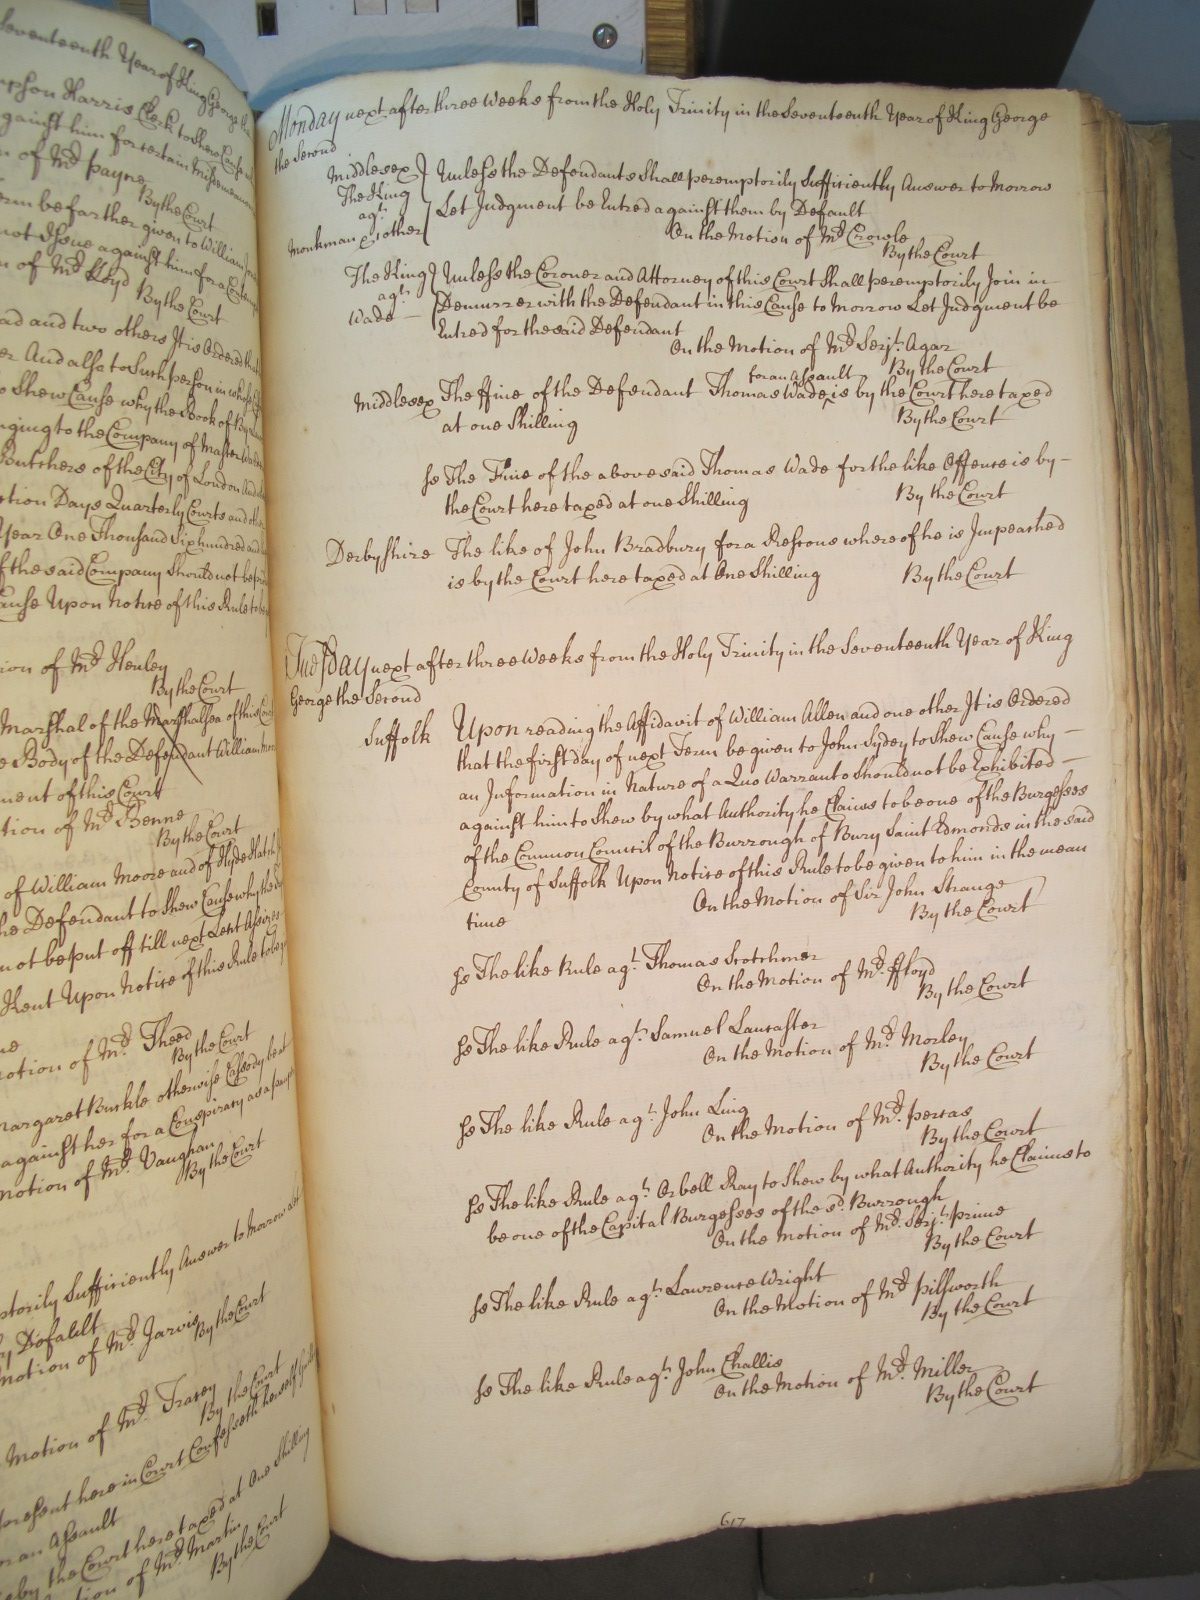 Seventeenth Year of King George the
Harris Clerk to Shew Cause
against him for certain Misdemeanors
of Mr. Payne
By the Court
be farther given to William
not Issue against him for a Contempt
of Mr. Lloyd
By the Court
and two others It is Ordered that
And also to Such person in whose
to Shew Cause why the Book of
belonging to the Company of Master Wardens
Butchers of the City of London
Days Quarterly Courts and other
Year One Thousand Six hundred and
of the said Company Should not be
Cause Upon Notice of this Rule to be
of Mr. Henley
By the Court
Marshal of the Marshalsea of this Court
Body of the Defendant William
of this Court
of Mr. Benne
By the Court
of William Moore and of Hyde
the Defendant to Shew Cause why the
not be put off till next Lent Assizes
Kent Upon Notice of this Rule to be
motion of Mr. Theed
By the Court
Margaret Burkle otherwise Cassody
against her for a Conspiracy
motion of Mr. Vaughan
By the Court
Sufficiently Answer to Morrow
Default
motion of Mr. Jarvis
By the Court
Motion of Mr. Tracey
By the Court
present here in Court Confesseth herself Guilty
an Assault
by the Court here taxed at One Shilling
of Mr. Martin
By the Court
Monday next after three Weeks from the Holy Trinity in the Seventeenth Year of King George
the Second
Middlesex } Unless the Defendants Shall peremptorily Sufficiently Answer to Morrow
The King
agt. Let Judgment be Entred against them by Default
Monkman & other On the Motion of Mr. Crowle
By the Court
The King } Unless the Coroner and Attorney of this Court Shall peremptorily Join in
agt. Demurrer with the Defendant in this Cause to Morrow Let Judgment be
Wade Entred for the said Defendant
On the Motion of Mr. Serjt. Agar
By the Court
for an Assault
Middlesex The ffine of the Defendant Thomas Wade ‸ is by the Court here taxed
at one Shilling By the Court
ss The Fine of the abovesaid Thomas Wade for the like Offence is by
the Court here taxed at one Shilling By the Court
Derbyshire The like of John Bradbury for a Rescous whereof he is Impeached
is by the Court here taxed at One Shilling By the Court
Tuesday next after three Weeks from the Holy Trinity in the Seventeenth Year of King
George the Second
Suffolk Upon reading the Affidavit of William Allen and one other It is Ordered
that the first day of next Term be given to John Sydey to Shew Cause why
an Information in Nature of a Quo Warranto Should not be Exhibited
against him to Shew by what Authority he Claims to be one of the Burgesses
of the Common Council of the Burrough of Bury Saint Edmonds in the said
County of Suffolk Upon Notice of this Rule to be given to him in the mean
time On the Motion of Sir John Strange
By the Court
ss The like Rule agt. Thomas Scotchmer
On the Motion of Mr. ffloyd
By the Court
ss The like Rule agt. Samuel Lancaster
On the Motion of Mr. Morley
By the Court
ss The like Rule agt. John Ling
On the Motion of Mr. Percas
By the Court
ss The like Rule agt. Orbell Ray to Shew by what Authority he Claims to
be one of the Capital Burgesses of the sd. Burrough
On the Motion of Mr. Serjt. Prime
By the Court
ss The like Rule agt. Lawrence Wright
On the Motion of Mr. Pilsworth
By the Court
ss The like Rule agt. John Challis
On the Motion of Mr. Miller
By the Court
617